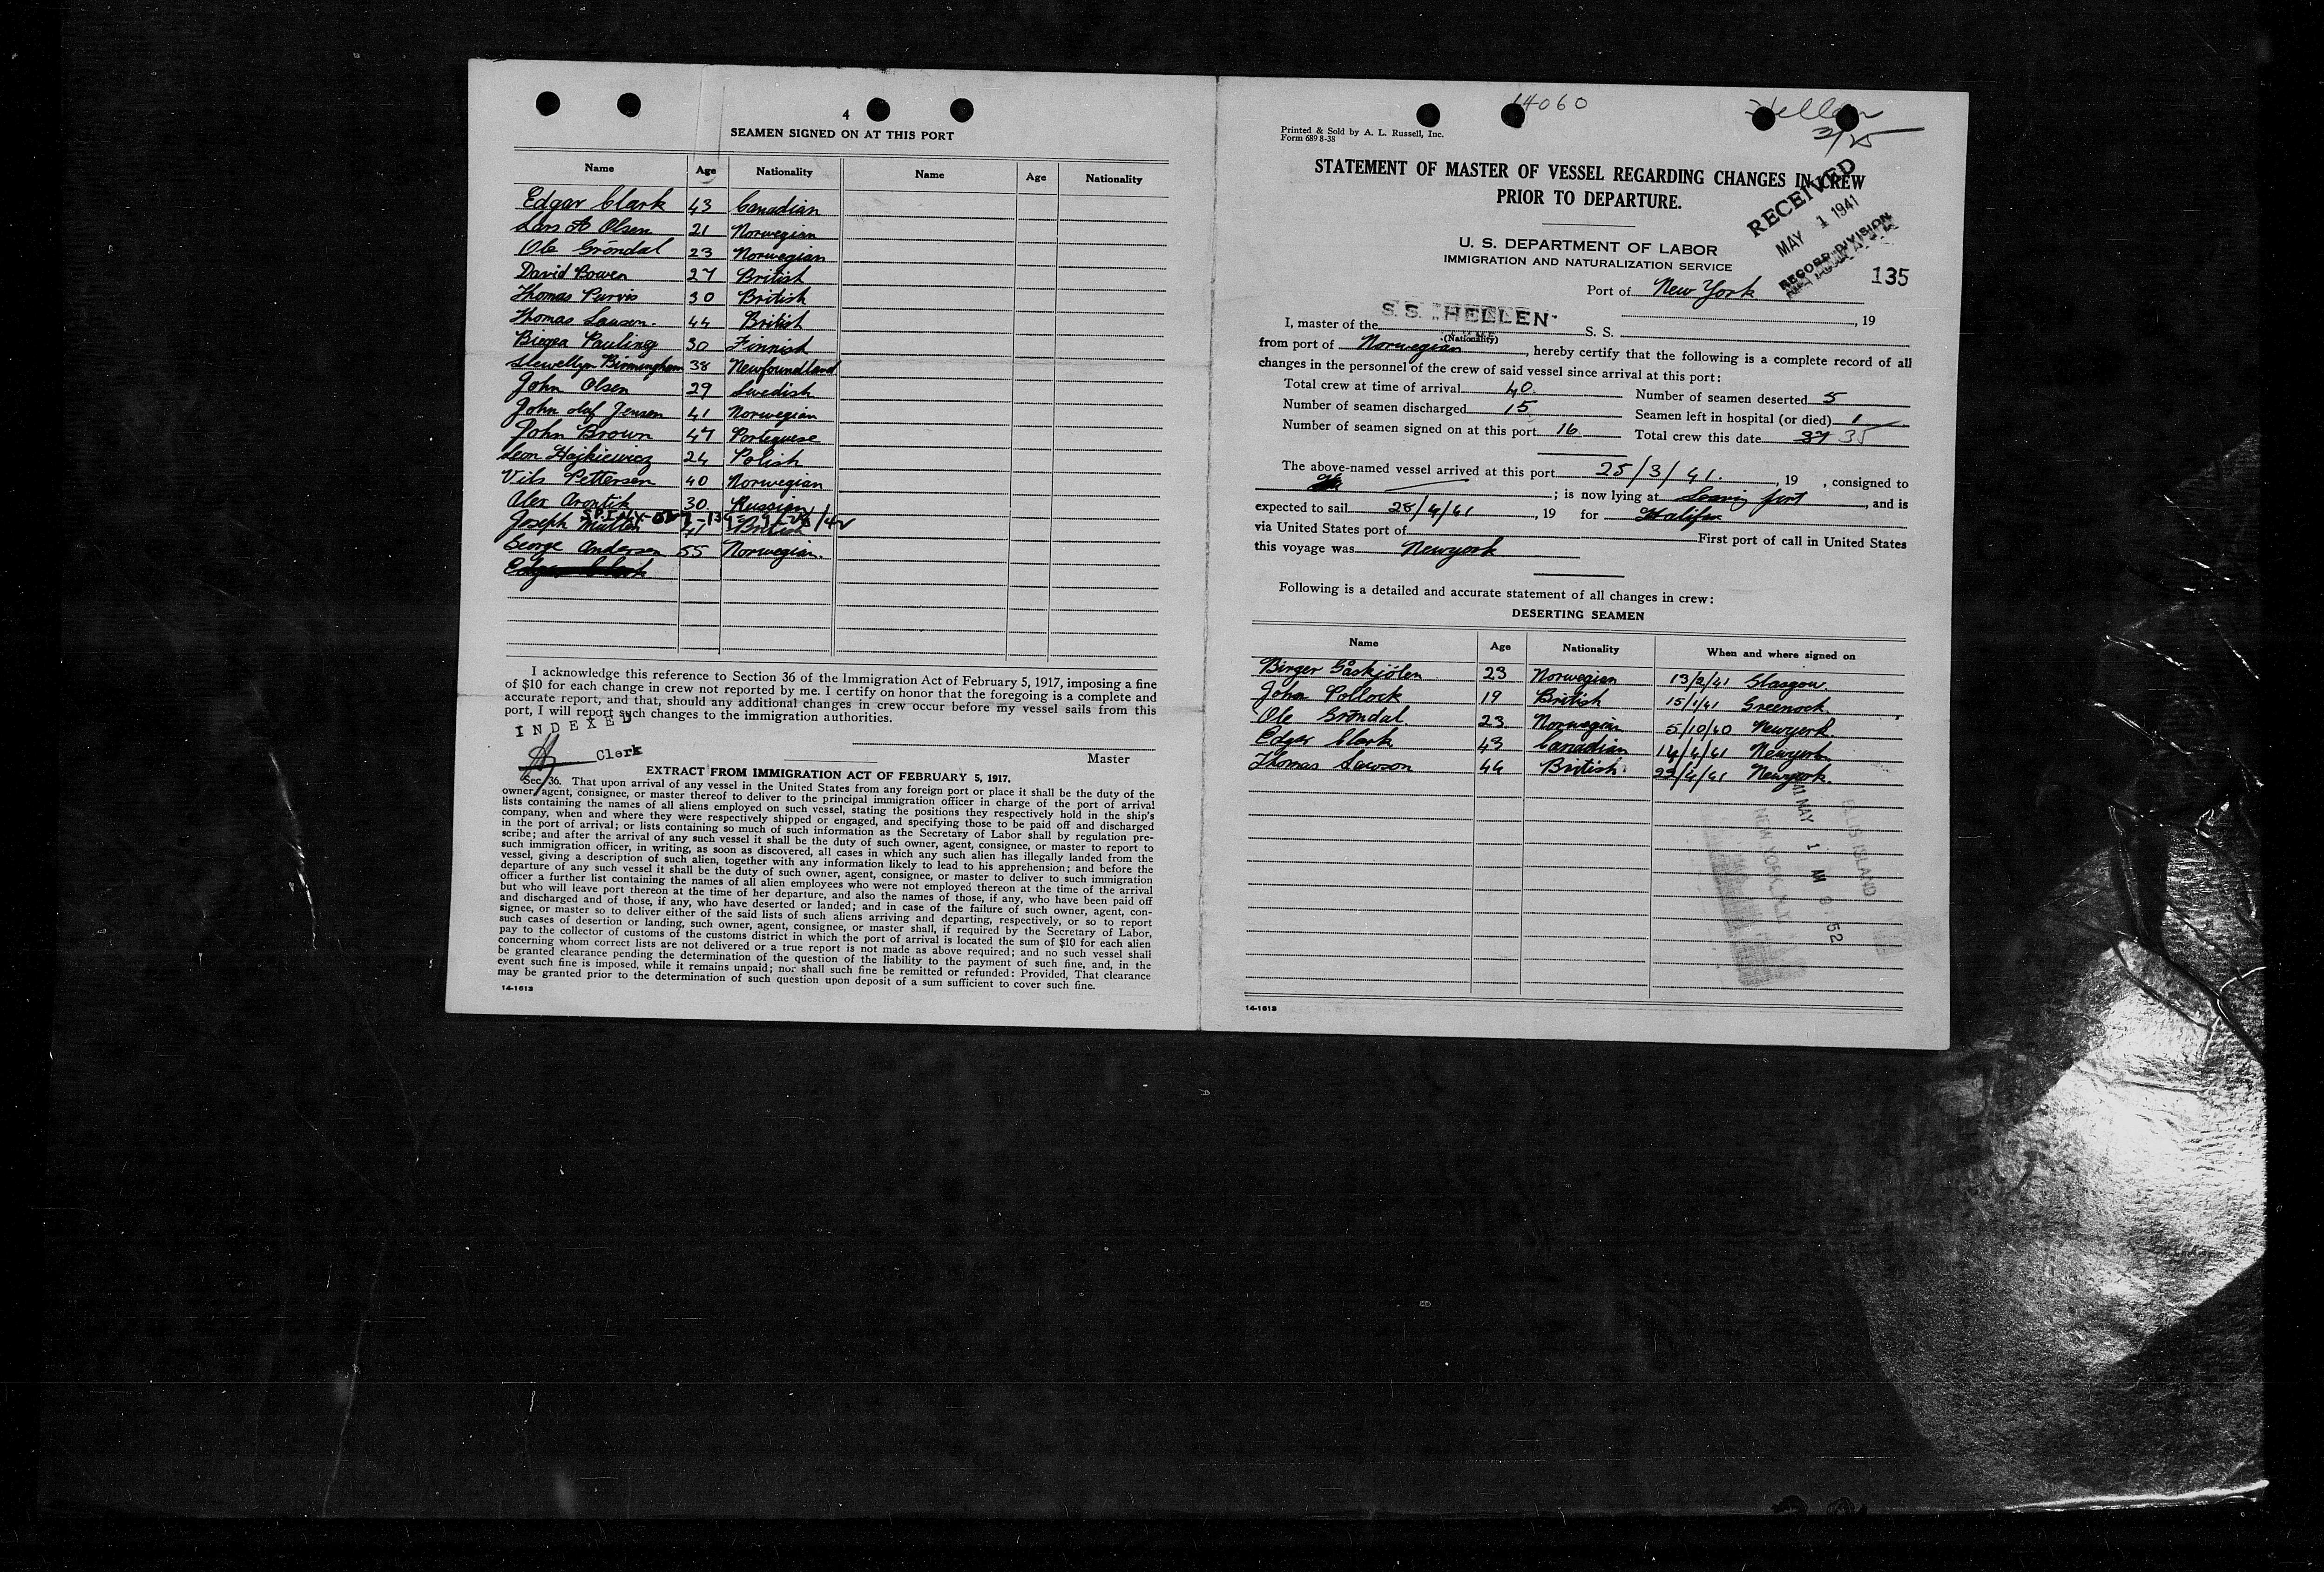 4
SEAMEN SIGNED ON AT THIS PORT
Name Age Nationality Name Age Nationality
Edgar Clark 43 Canadian
Lars A Olsen 21 Norwegian
Ole Gröndal 23 Norwegian
David Bowen 27 British
Thomas Purvis 30 British
Thomas Lawson. 44 British
Pauling 30 Finnish
Llewellyn Birmingham 38 Newfoundland
John Olsen 29 Swedish
John Olaf Jensen 41 Norwegian
John Brown 47 Portequese
Leon Hajkiewicz 24 Polish
Nils Pettersen 40 Norwegian
Alex Aroutik 30 Russian
Joseph Mutton 41 British
George Andersen 55 Norwegian.
Edgar Clark
I acknowledge this reference to Section 36 of the Immigration Act of February 5, 1917, imposing a fine
of $10 for each change in crew not reported by me. I certify on honor that the foregoing is a complete and
accurate report, and that, should any additional changes in crew occur before my vessel sails from this
port, I will report such changes to the immigration authorities.
INDEXED
Clerk
Master
EXTRACT FROM IMMIGRATION ACT OF FEBRUARY 5, 1917.
Sec. 36. That upon arrival of any vessel in the United States from any foreign port or place it shall be the duty of the
owner, agent, consignee, or master thereof to deliver to the principal immigration officer in charge of the port of arrival
lists containing the names of all aliens employed on such vessel, stating the positions they respectively hold in the ship's
company, when and where they were respectively shipped or engaged, and specifying those to be paid off and discharged
in the port of arrival; or lists containing so much of such information as the Secretary of Labor shall by regulation pre-
scribe; and after the arrival of any such vessel it shall be the duty of such owner, agent, consignee, or master to report to
such immigration officer, in writing, as soon as discovered, all cases in which any such alien has illegally landed from the
vessel, giving a description of such alien, together with any information likely to lead to his apprehension; and before the
departure of any such vessel it shall be the duty of such owner, agent, consignee, or master to deliver to such immigration
officer a further list containing the names of all alien employees who were not employed thereon at the time of the arrival
but who will leave port thereon at the time of her departure, and also the names of those, if any, who have been paid off
and discharged and of those, if any, who have deserted or landed; and in case of the failure of such owner, agent, con-
signee, or master so to deliver either of the said lists of such aliens arriving and departing, respectively, or so to report
such cases of desertion or landing, such owner, agent, consignee, or master shall, if required by the Secretary of Labor,
pay to the collector of customs of the customs district in which the port of arrival is located the sum of $10 for each alien
concerning whom correct lists are not delivered or a true report is not made as above required; and no such vessel shall
be granted clearance pending the determination of the question of the liability to the payment of such fine, and, in the
event such fine is imposed, while it remains unpaid; nor shall such fine be remitted or refunded: Provided, That clearance
may be granted prior to the determination of such question upon deposit of a sum sufficient to cover such fine.
14-1613
14060
Hellen
3/25
Printed & Sold by A. L. Russell, Inc.
Form 689 8-38
STATEMENT OF MASTER OF VESSEL REGARDING CHANGES IN CREW
PRIOR TO DEPARTURE.
RECEIVED
MAY 1 1941
RECORD DIVISION
U. S. DEPARTMENT OF LABOR
IMMIGRATION AND NATURALIZATION SERVICE
135
Port of New York
, 19
I, master of the S.S. "HELLEN" S. S.
(Nationality)
from port of Norwegian, hereby certify that the following is a complete record of all
changes in the personnel of the crew of said vessel since arrival at this port:
Total crew at time of arrival 40. Number of seamen deserted 5
Number of seamen discharged 15 Seamen left in hospital (or died) 1
Number of seamen signed on at this port 16 Total crew this date 37 35
The above-named vessel arrived at this port 25/3/41. , 19 , consigned to
; is now lying at Leaving port, and is
expected to sail 28/4/41, 19 for Halifax
via United States port of First port of call in United States
this voyage was Newyork
Following is a detailed and accurate statement of all changes in crew:
DESERTING SEAMEN
Name Age Nationality When and where signed on
Birger Gåskjölen 23 Norwegian 13/2/41 Glasgow.
John Pollock 19 British 15/1/41 Greenock.
Ole Gröndal. 23 Norwegian 5/10/40 Newyork.
Edgar Clark 43 Canadian 14/4/41 Newyork.
Thomas Lawson 44 British 22/4/41 Newyork.
41 MAY 1 AM 9:52
ELLIS ISLAND
NEW YORK, N.Y.
14-1613